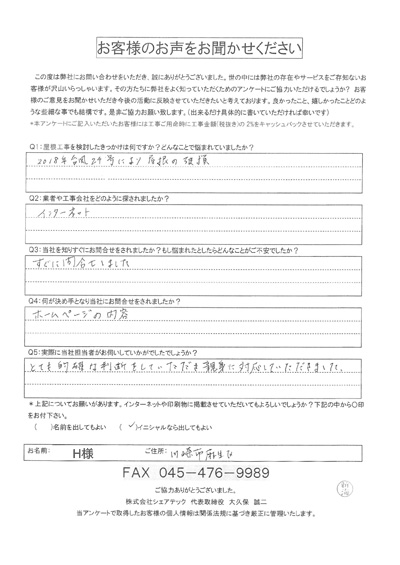 お客様のお声をお聞かせください
この度は弊社にお問い合わせをいただき、誠にありがとうございました。世の中には弊社の存在やサービスをご存知ないお
客様が沢山いらっしゃいます。その方たちに弊社をよく知っていただくためのアンケートにご協力いただけるでしょうか? お客
様のご意見をお聞かせいただき今後の活動に反映させていただきたいと考えております。良かったこと、嬉しかったことどのよ
うな些細な事でも結構です。是非ご協力お願い致します。(出来るだけ具体的に書いていただければ幸いです)
*本アンケートにご記入いただいたお客様には工事ご用命時に工事金額(税抜き)の2%をキャッシュバックさせていただきます。
Q1:屋根工事を検討したきっかけは何ですか?どんなことで悩まれていましたか?
2018年台風24号により屋根の破損
Q2:業者や工事会社をどのように探されましたか?
インターネット
Q3:当社を知りすぐにお問合せをされましたか?もし悩まれたとしたらどんなことがご不安でしたか?
すぐに問合せしました
Q4:何が決め手となり当社にお問合せをされましたか?
ホームページの内容
Q5:実際に当社担当者がお伺いしていかがでしたでしょうか?
とても的確な判断をしていただき親身に対応していただきました。
*上記についてお願いがあります。インターネットや印刷物に掲載させていただいてもよろしいでしょうか?下記の中から〇印
をお付下さい。
( )名前を出してもよい (✓)イニシャルなら出してもよい
お名前: H様 ご住所: 川崎市麻生区
FAX 045-476-9989
ご協力ありがとうございました。
株式会社シェアテック 代表取締役 大久保 誠二
当アンケートで取得したお客様の個人情報は関係法規に基づき厳正に管理いたします。